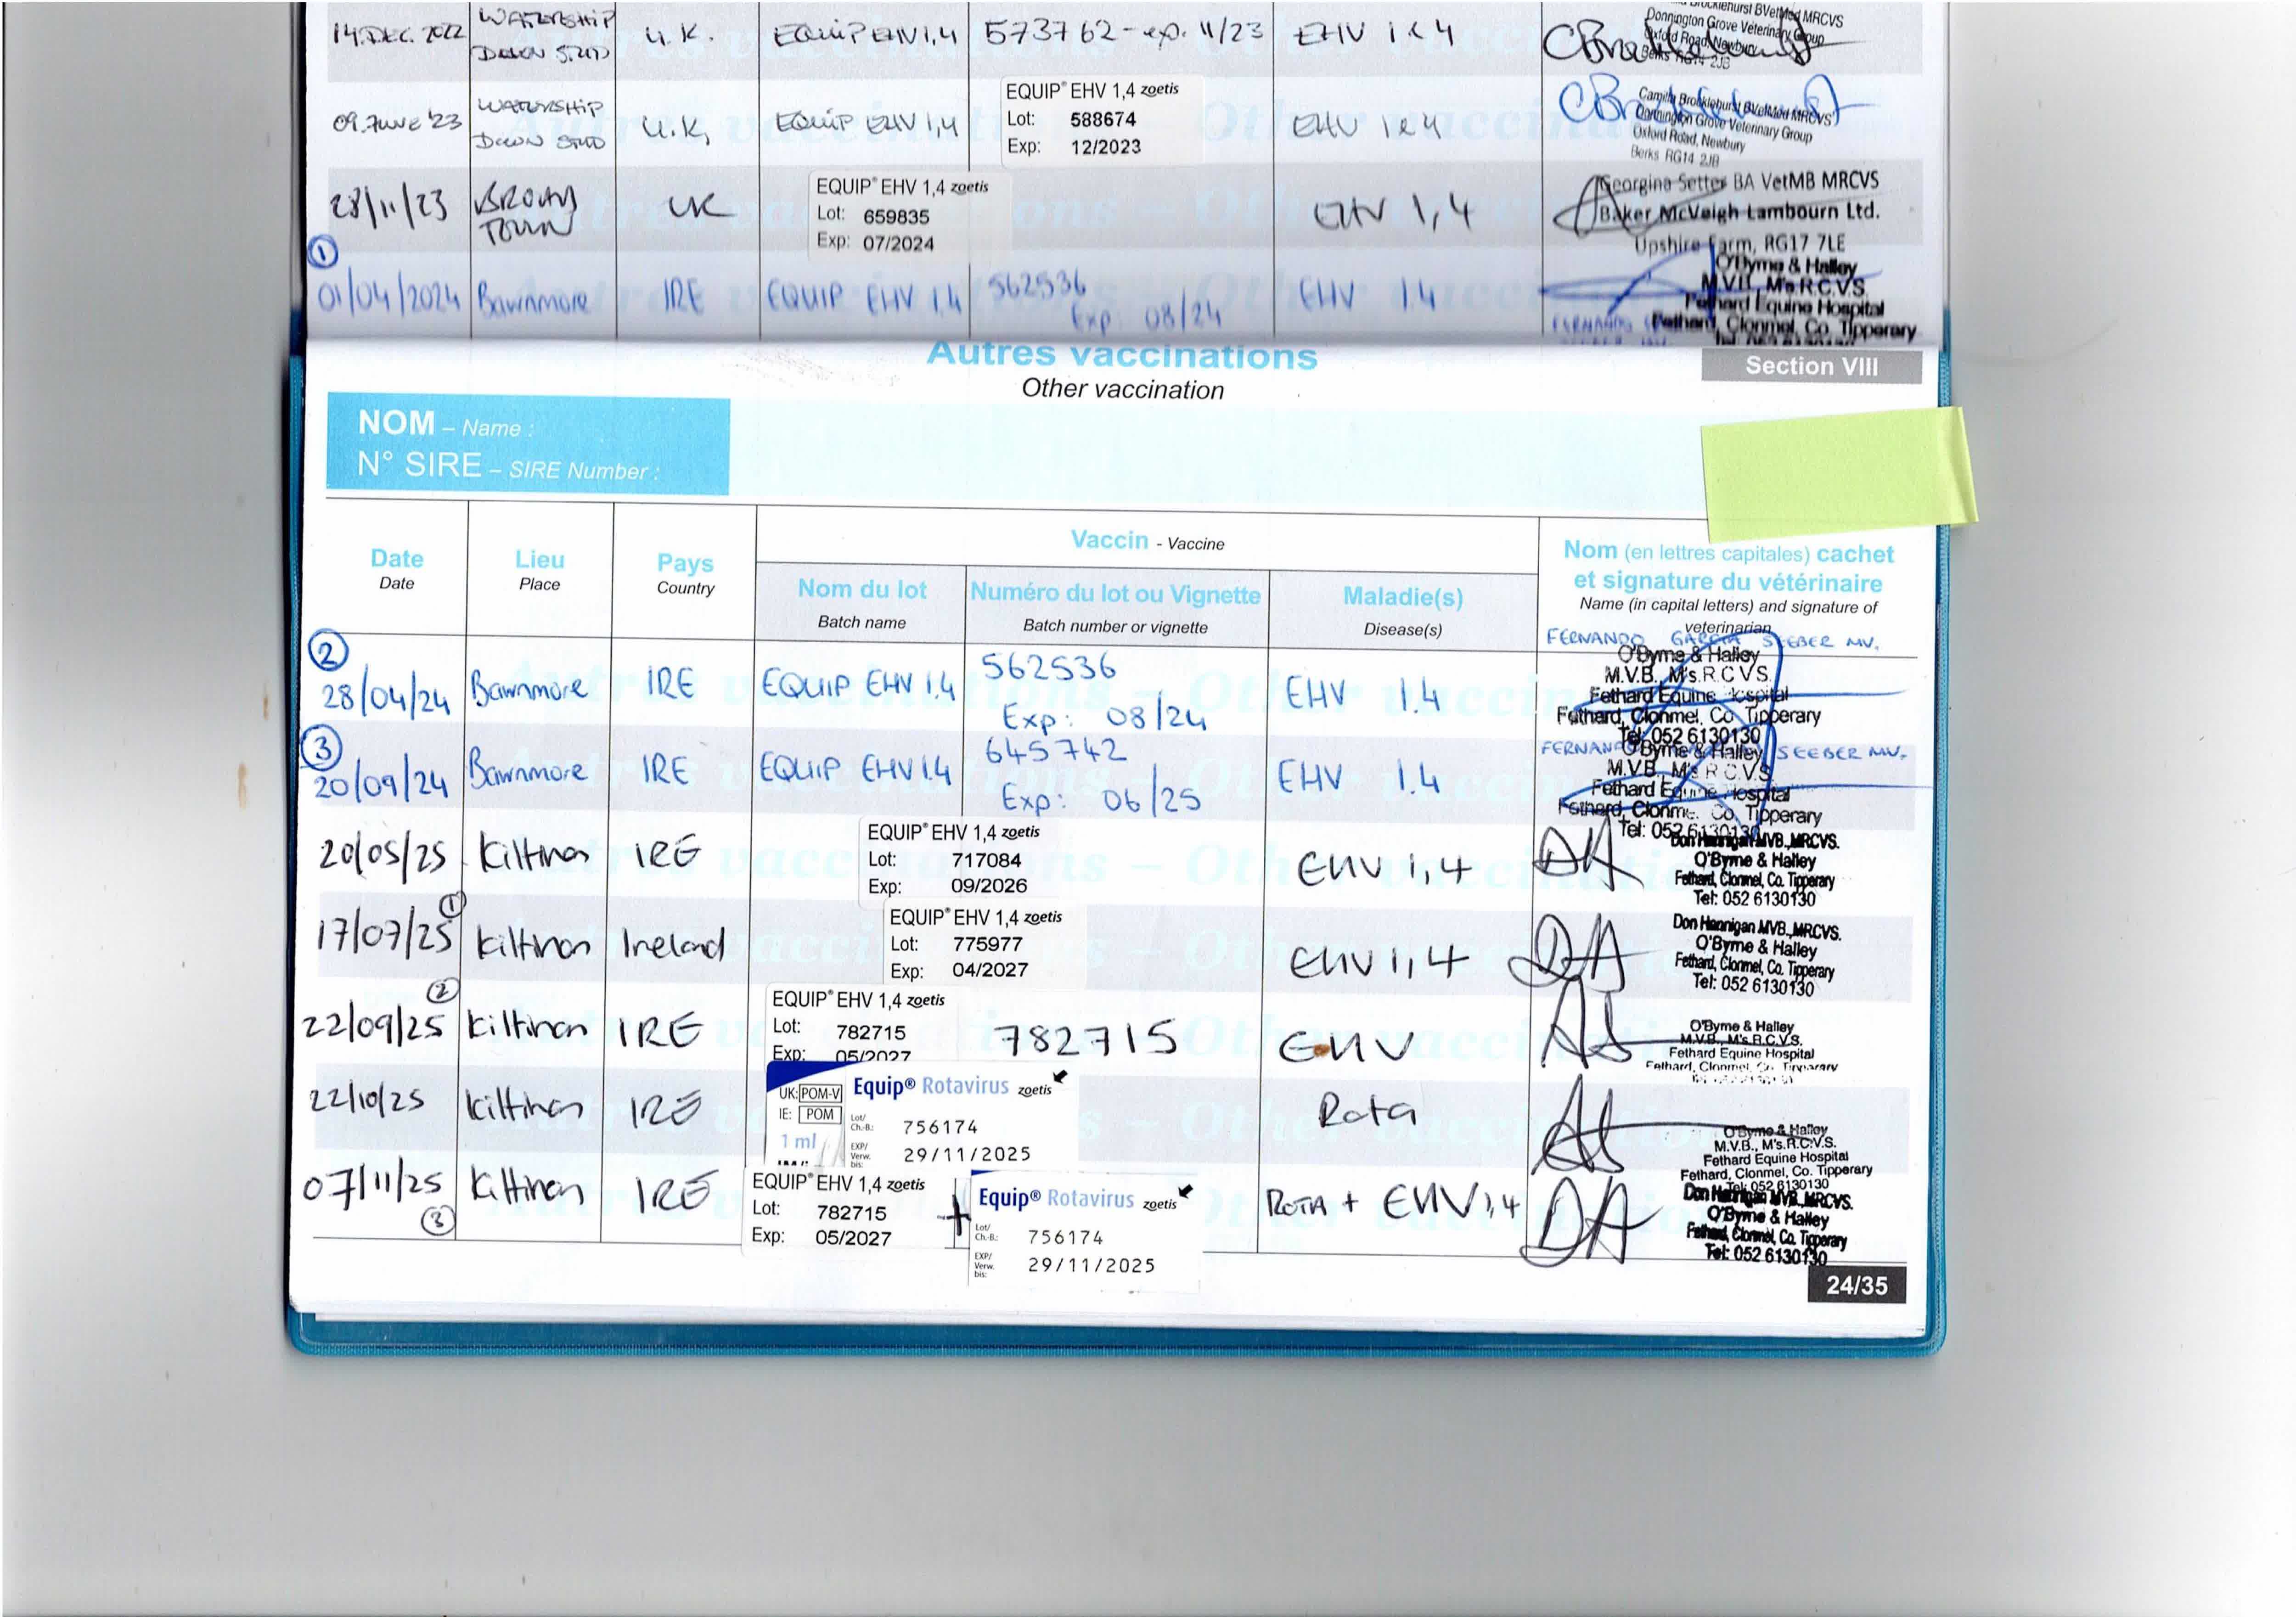 14.DEC.2022 WATERSHIP DOWN STUD U.K. EQUIP EHV 1,4 573762 - exp. 11/23 EHV 1 & 4
Brocklehurst BVetMed MRCVS
Donnington Grove Veterinary Group
Oxford Road, Newbury
Berks RG14 2JB
09.JUNE '23 WATERSHIP DOWN STUD U.K. EQUIP EHV 1,4
EQUIP® EHV 1,4 zoetis
Lot: 588674
Exp: 12/2023
EHV 1 & 4
Camilla Brocklehurst BVetMed MRCVS
Donnington Grove Veterinary Group
Oxford Road, Newbury
Berks RG14 2JB
28/11/23 UK
EQUIP® EHV 1,4 zoetis
Lot: 659835
Exp: 07/2024
EHV 1,4
Georgina Setter BA VetMB MRCVS
Baker McVeigh Lambourn Ltd.
Upshire Farm, RG17 7LE
①
01/04/2024 Bawnmore IRE EQUIP EHV 1.4 562536
Exp 08/24
EHV 1.4
O'Byrne & Halley
M.V.B., M's R.C.V.S.
Fethard Equine Hospital
FERNANDO
Fethard, Clonmel, Co. Tipperary
Autres vaccinations
Other vaccination
Section VIII
NOM – Name :
N° SIRE – SIRE Number :
Date
Date
Lieu
Place
Pays
Country
Vaccin - Vaccine
Nom du lot
Batch name
Numéro du lot ou Vignette
Batch number or vignette
Maladie(s)
Disease(s)
Nom (en lettres capitales) cachet
et signature du vétérinaire
Name (in capital letters) and signature of
veterinarian
②
28/04/24 Bawnmore IRE EQUIP EHV 1.4 562536
Exp: 08/24
EHV 1.4
FERNANDO GARCIA SEEBER MV.
O'Byrne & Halley
M.V.B., M's R.C.V.S.
Fethard Equine Hospital
Fethard, Clonmel, Co. Tipperary
Tel: 052 6130130
③
20/09/24 Bawnmore IRE EQUIP EHV 1.4 645742
Exp: 06/25
EHV 1.4
FERNANDO SEEBER MV.
O'Byrne & Halley
M.V.B., M's R.C.V.S.
Fethard Equine Hospital
Fethard, Clonmel, Co. Tipperary
Tel: 052 6130130
20/05/25 Kiltinan IRE
EQUIP® EHV 1,4 zoetis
Lot: 717084
Exp: 09/2026
EHV 1,4
Don Hannigan MVB., MRCVS.
O'Byrne & Halley
Fethard, Clonmel, Co. Tipperary
Tel: 052 6130130
①
17/07/25 Kiltinan Ireland
EQUIP® EHV 1,4 zoetis
Lot: 775977
Exp: 04/2027
EHV 1,4
Don Hannigan MVB., MRCVS.
O'Byrne & Halley
Fethard, Clonmel, Co. Tipperary
Tel: 052 6130130
②
22/09/25 Kiltinan IRE
EQUIP® EHV 1,4 zoetis
Lot: 782715
Exp: 05/2027
782715 EHV
O'Byrne & Halley
M.V.B., M's.R.C.V.S.
Fethard Equine Hospital
Fethard, Clonmel, Co. Tipperary
22/10/25 Kiltinan IRE
UK: POM-V
IE: POM
1 ml
Equip® Rotavirus zoetis
Lot/ Ch.-B.: 756174
EXP/ Verw. bis: 29/11/2025
Rota
O'Byrne & Halley
M.V.B., M's.R.C.V.S.
Fethard Equine Hospital
Fethard, Clonmel, Co. Tipperary
Tel: 052 6130130
07/11/25 Kiltinan IRE
③
EQUIP® EHV 1,4 zoetis
Lot: 782715
Exp: 05/2027
+
Equip® Rotavirus zoetis
Lot/ Ch.-B.: 756174
EXP/ Verw. bis: 29/11/2025
ROTA + EHV 1,4
Don Hannigan MVB., MRCVS.
O'Byrne & Halley
Fethard, Clonmel, Co. Tipperary
Tel: 052 6130130
24/35